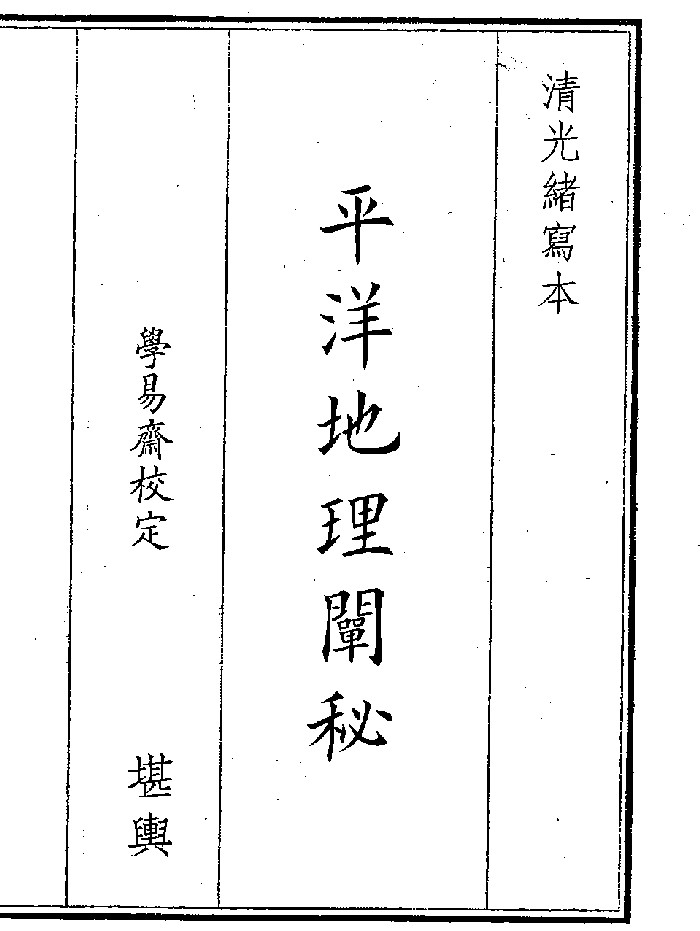 清光緒寫本
平洋地理闡秘
學易齋校定
堪輿